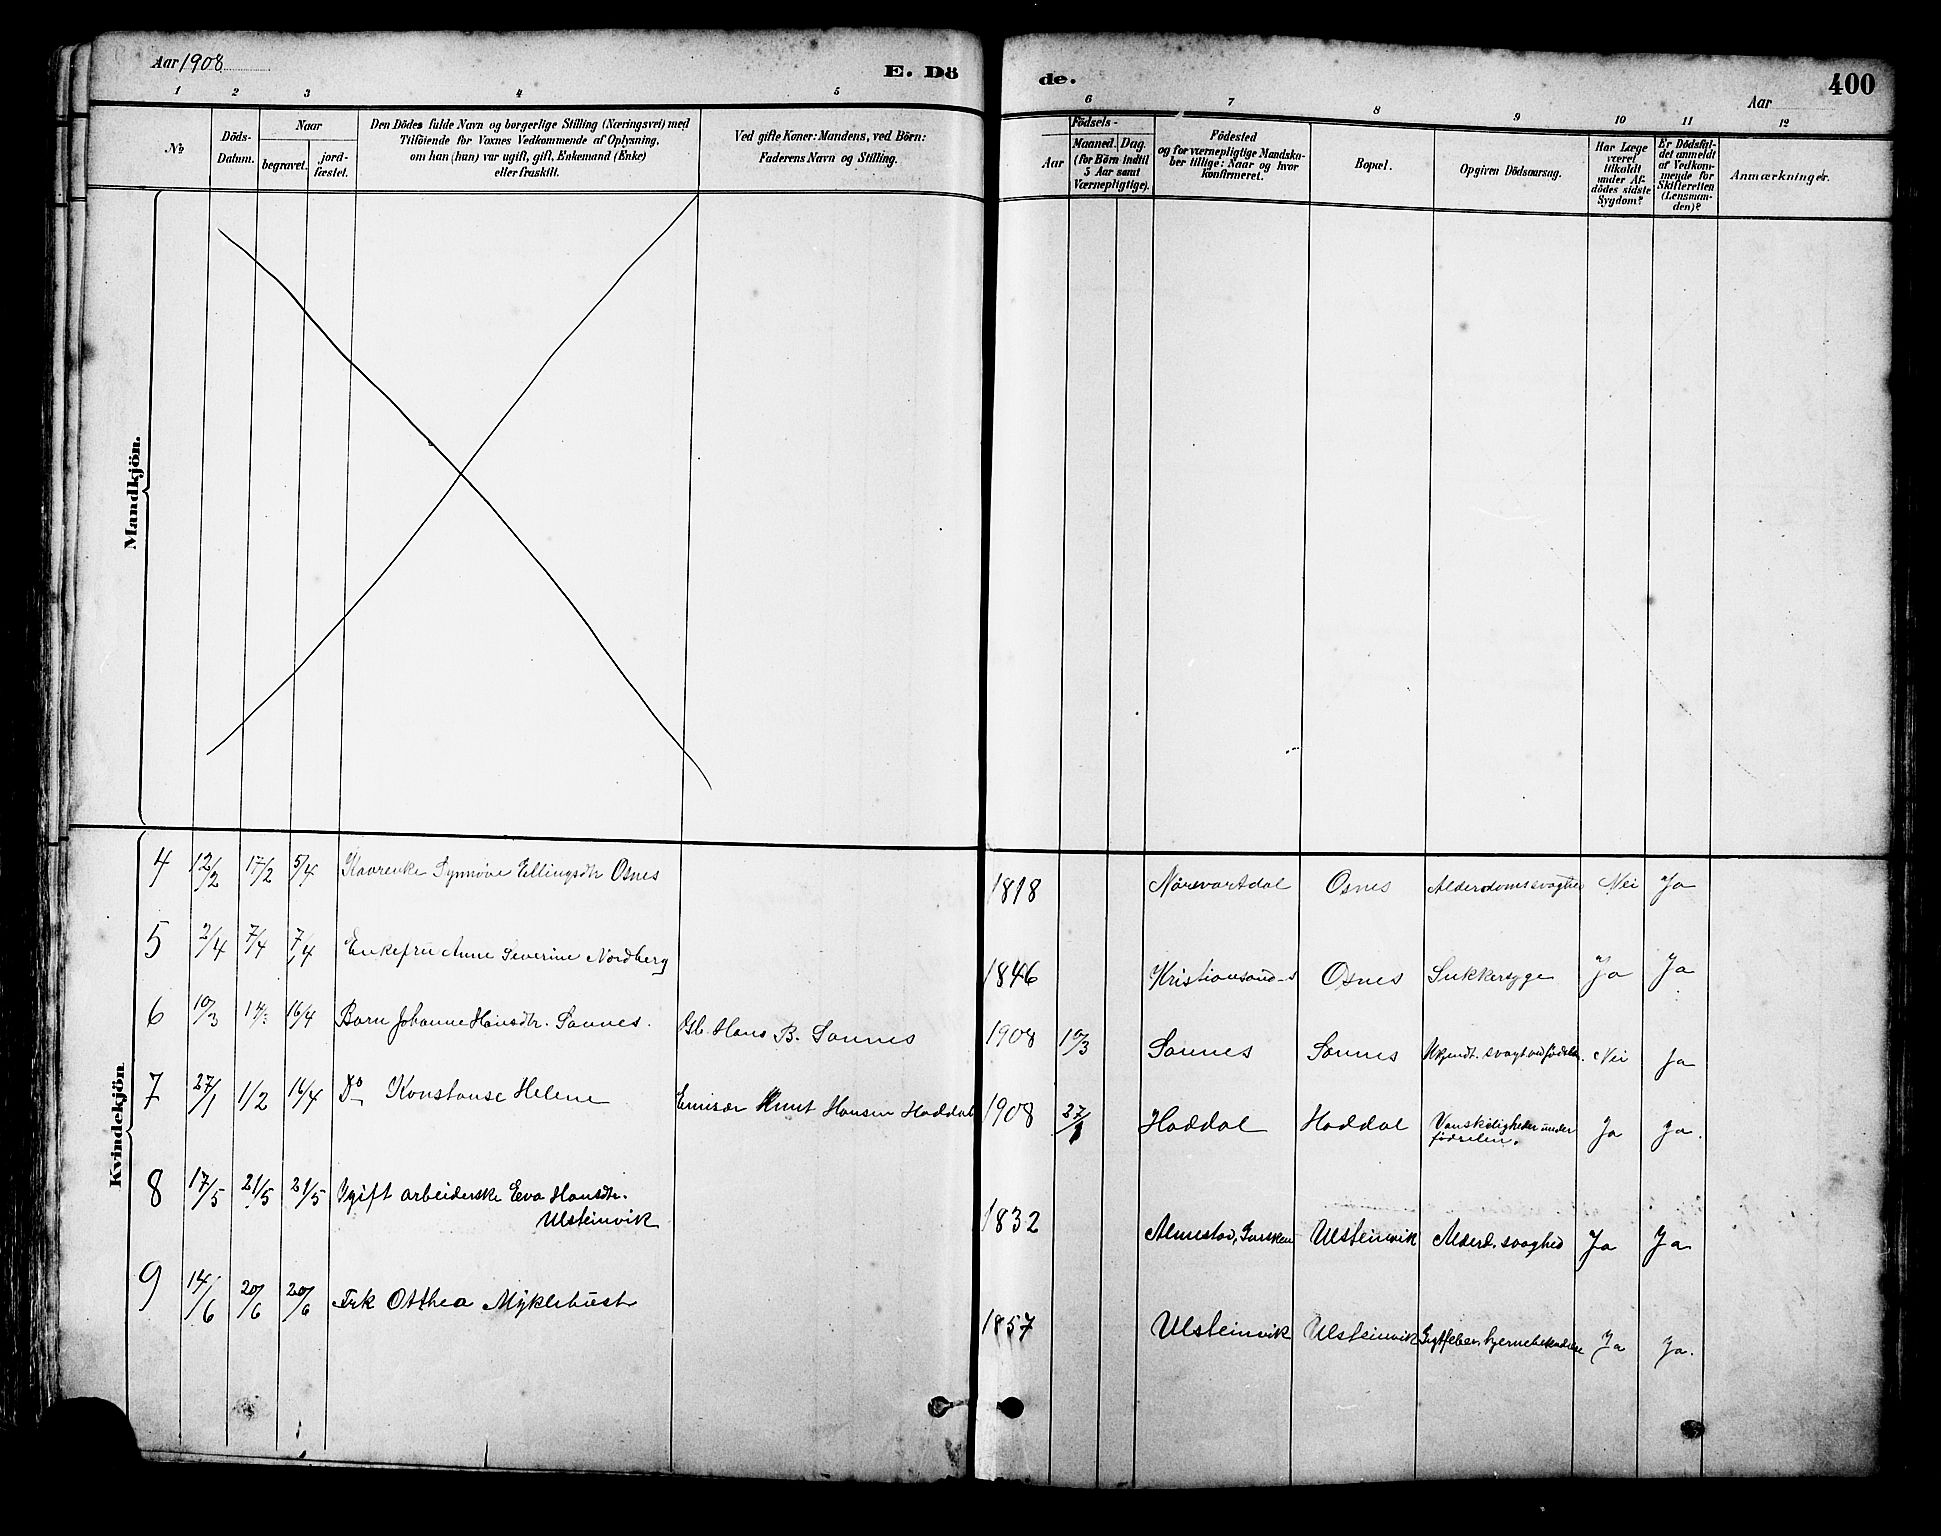 Aar 1908
E. Dö
de.
400
Aar
1 2 3 4 5 6 7 8 9 10 11 12
No
Döds-
Datum.
Naar
begravet.
jord-
fæstet.
Den Dödes fulde Navn og borgerlige Stilling (Næringsvei) med
Tilföiende for Voxnes Vedkommende af Oplysning,
om han (hun) var ugift, gift, Enkemand (Enke)
eller fraskilt.
Ved gifte Koner: Mandens, ved Börn:
Faderens Navn og Stilling.
Födsels-
Aar
Maaned. Dag.
(for Börn indtil
5 Aar samt
Værnepligtige).
Födested
og for værnepligtige Mandska-
ber tillige: Naar og hvor
konfirmeret.
Bopæl.
Opgiven Dödsaarsag.
Har Læge
været
tilkaldt
under Af-
dödes sidste
Sygdom?
Er Dödsfal-
det anmeldt
af Vedkom-
mende for
Skifteretten
(Lensman-
den)?
Anmærkninger.
Mandkjön.
Kvindekjön.
4 12/2 17/2 5/4 Kaarenke Synnöve Ellingsdtr Osnes 1818 Osnes Nei Ja
5 2/4 7/4 7/4 Enkefru Anne Severine Nordberg 1846 Kristiansund Osnes Sukkersyge Ja Ja
6 10/3 14/3 16/4 Barn Johanne Hansdtr. Saunes. Gb. Hans B. Saunes 1908 10/3 Saunes Saunes Ukjendt. svagt ved födselen. Nei Ja
7 27/1 1/2 16/4 Do Konstanse Helene Emisær Knut Hansen Haddal 1908 27/1 Haddal Haddal Vanskeligheder under
födselen. Ja Ja.
8 17/5 21/5 21/5 Ugift arbeiderske Eva Hansdtr.
Ulsteinvik 1832 Almestad, Ulsteinvik Alderd. svaghed Ja Ja
9 14/6 20/6 20/6 Frk Otthea Myklebust 1857 Ulsteinvik Ulsteinvik Ja Ja.